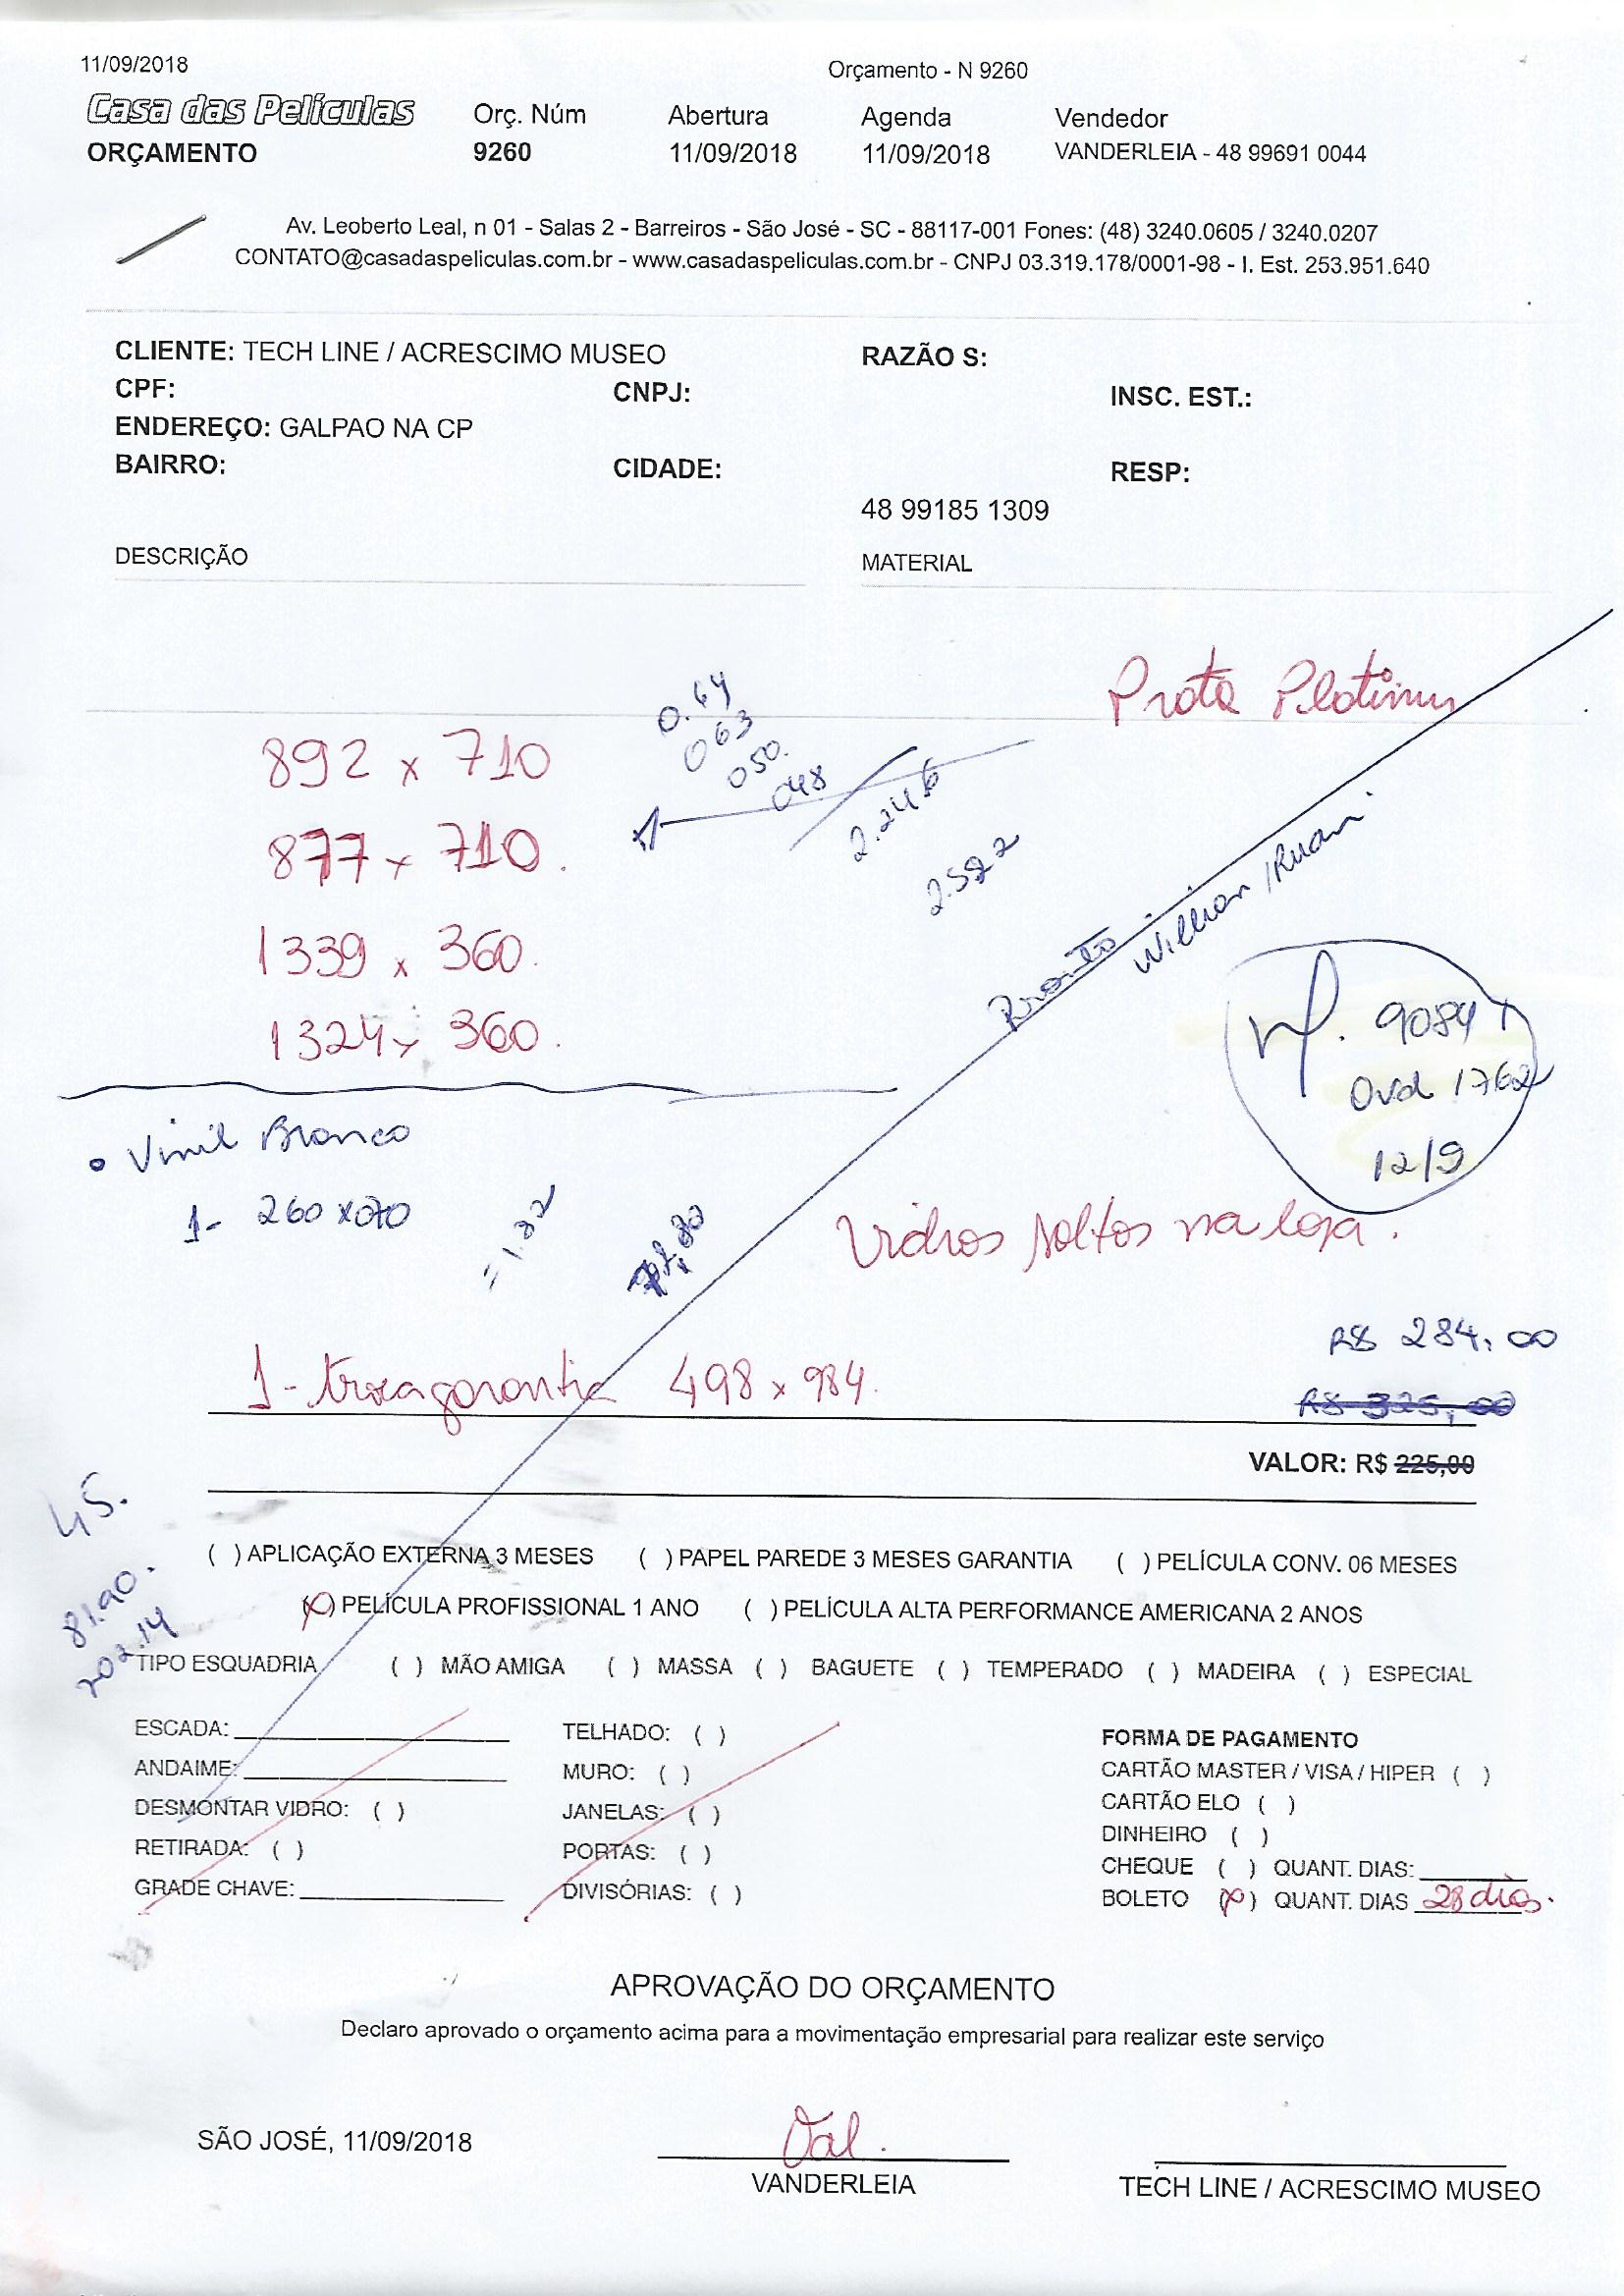 11/09/2018 Orçamento - N 9260
Casa das Películas Orç. Núm Abertura Agenda Vendedor
ORÇAMENTO 9260 11/09/2018 11/09/2018 VANDERLEIA - 48 99691 0044
Av. Leoberto Leal, n 01 - Salas 2 - Barreiros - São José - SC - 88117-001 Fones: (48) 3240.0605 / 3240.0207
CONTATO@casadaspeliculas.com.br - www.casadaspeliculas.com.br - CNPJ 03.319.178/0001-98 - I. Est. 253.951.640
CLIENTE: TECH LINE / ACRESCIMO MUSEO RAZÃO S:
CPF: CNPJ: INSC. EST.:
ENDEREÇO: GALPAO NA CP
BAIRRO: CIDADE: RESP:
48 99185 1309
DESCRIÇÃO MATERIAL
Prata Platinum
0.64
063
050.
048
2.246
2.592
892 x 710
877 x 710.
1339 x 360.
1324 x 360.
Pronto
Willian / Ruan
9084
Ord 1762
12/9
• Vinil Branco
1- 260 x 070
= 1.82
Vidros soltos na loja.
R$ 284,00
1- troca garantia 498 x 984. R$ 325,00
VALOR: R$ 225,00
45.
81.90.
202.14
( ) APLICAÇÃO EXTERNA 3 MESES ( ) PAPEL PAREDE 3 MESES GARANTIA ( ) PELÍCULA CONV. 06 MESES
(X) PELÍCULA PROFISSIONAL 1 ANO ( ) PELÍCULA ALTA PERFORMANCE AMERICANA 2 ANOS
TIPO ESQUADRIA ( ) MÃO AMIGA ( ) MASSA ( ) BAGUETE ( ) TEMPERADO ( ) MADEIRA ( ) ESPECIAL
ESCADA: TELHADO: ( ) FORMA DE PAGAMENTO
ANDAIME: MURO: ( ) CARTÃO MASTER / VISA / HIPER ( )
DESMONTAR VIDRO: ( ) JANELAS: ( ) CARTÃO ELO ( )
RETIRADA: ( ) PORTAS: ( ) DINHEIRO ( )
GRADE CHAVE: DIVISÓRIAS: ( ) CHEQUE ( ) QUANT. DIAS:
BOLETO (X) QUANT. DIAS 28 dias.
APROVAÇÃO DO ORÇAMENTO
Declaro aprovado o orçamento acima para a movimentação empresarial para realizar este serviço
SÃO JOSÉ, 11/09/2018 Val.
VANDERLEIA TECH LINE / ACRESCIMO MUSEO